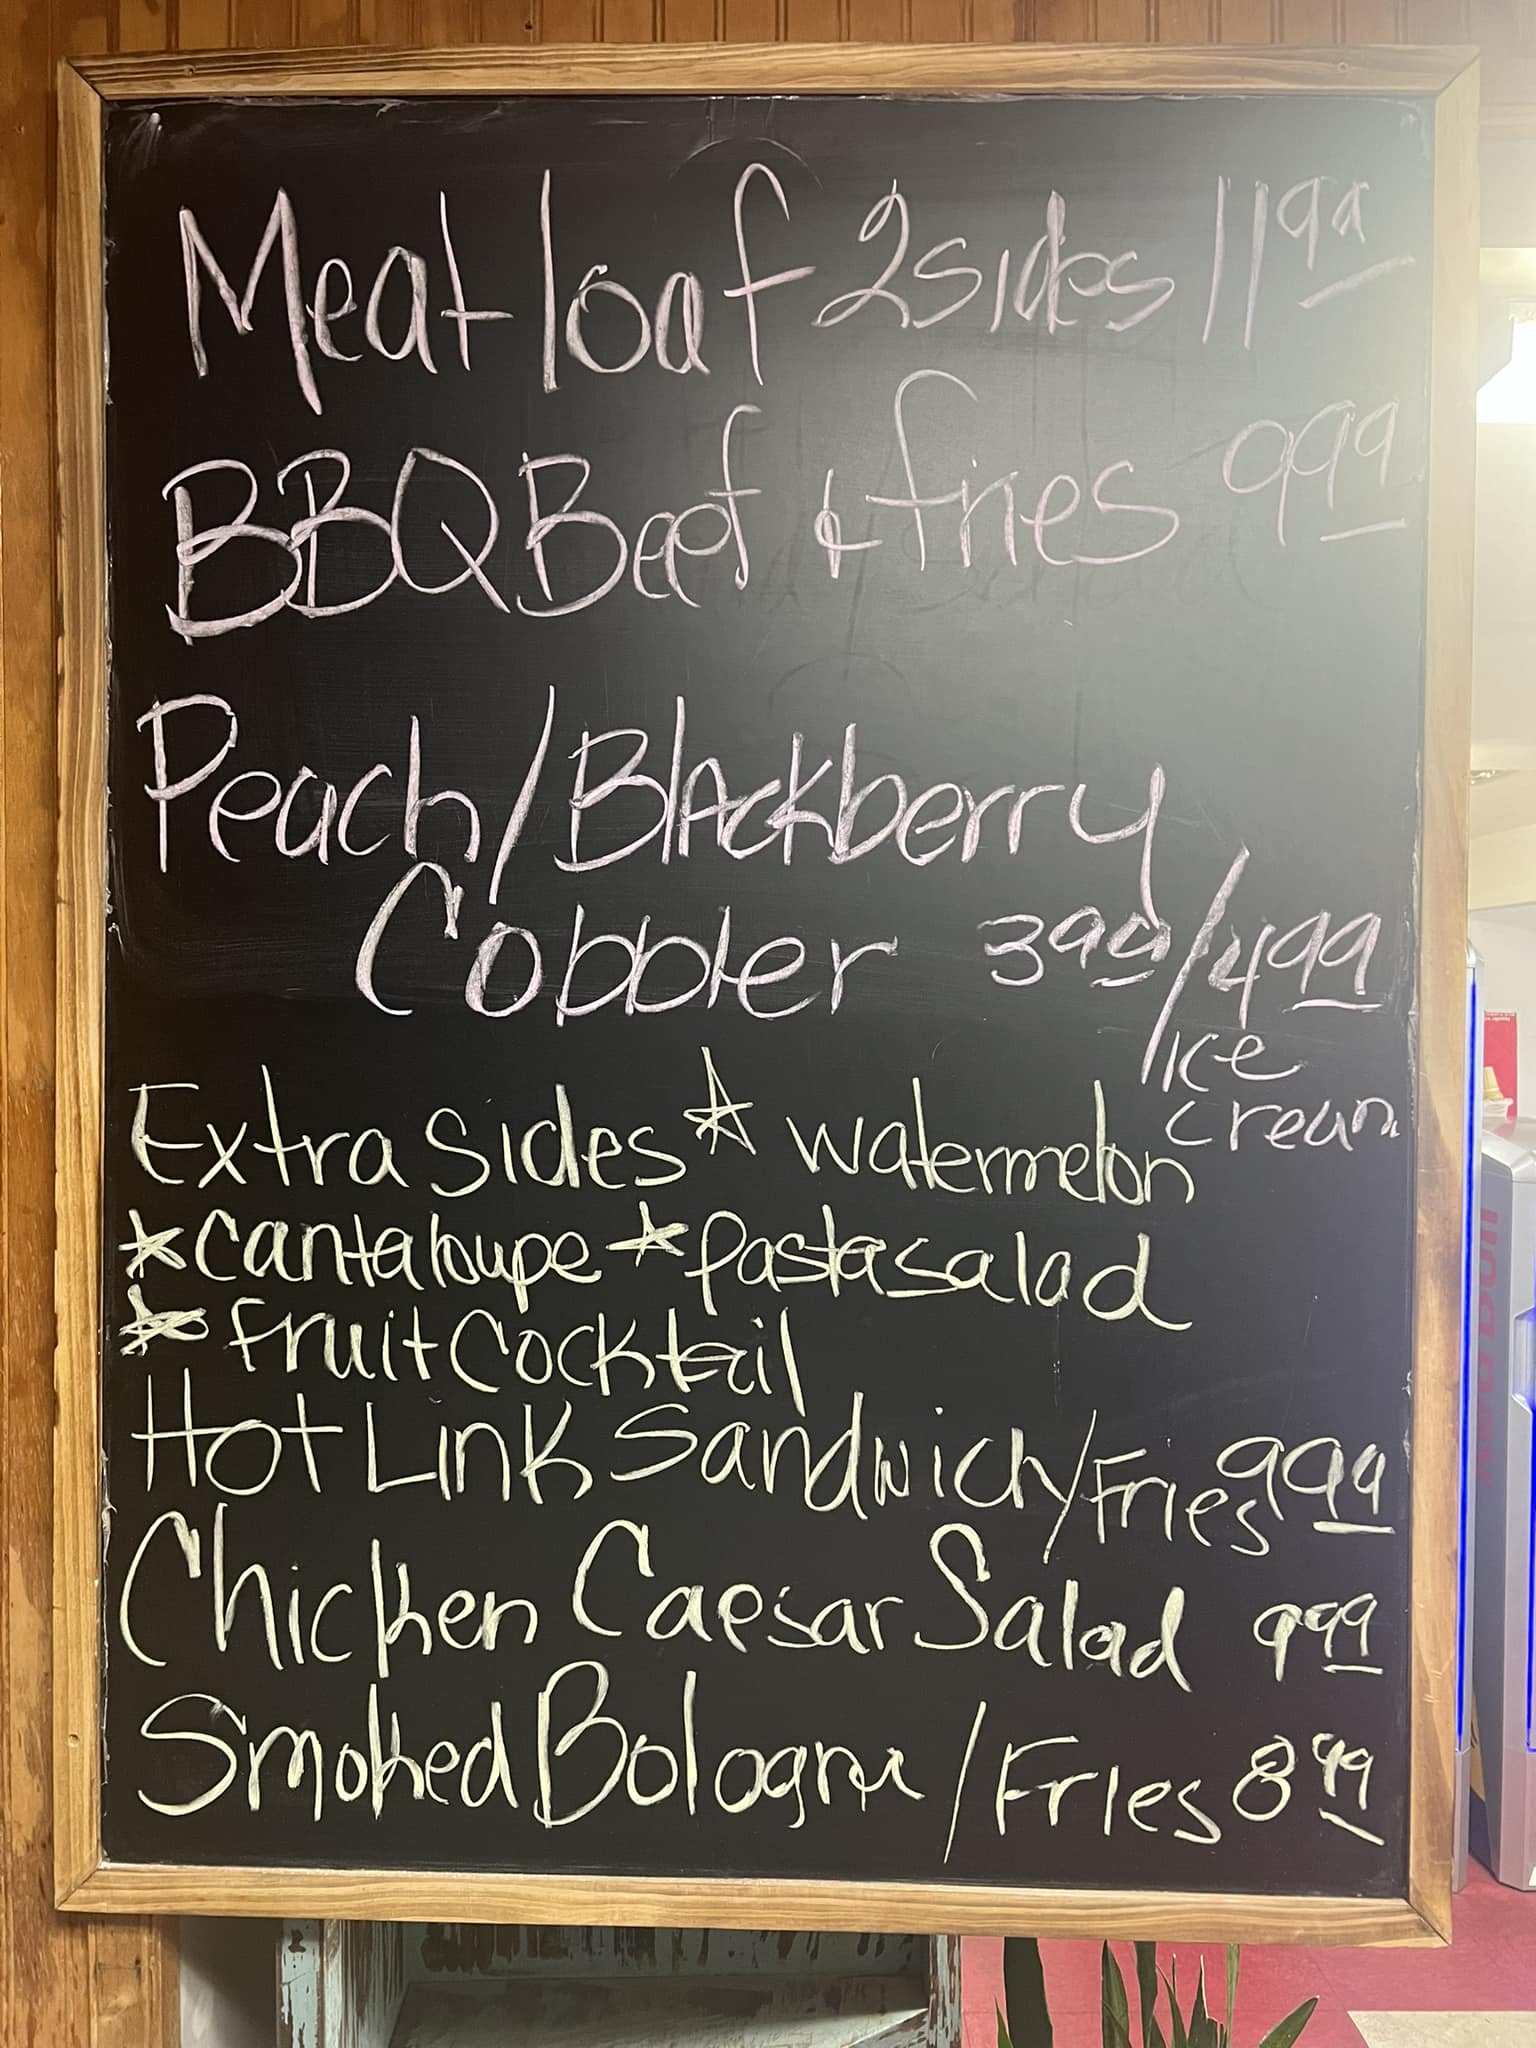 Meatloaf 2 sides 11.99
BBQ Beef & fries 9.99
Peach/Blackberry
Cobbler 3.99/4.99
Ice
cream
Extra Sides ☆ watermelon
☆ cantaloupe ☆ pasta salad
☆ fruit Cocktail
Hot Link Sandwich/Fries 9.99
Chicken Caesar Salad 9.99
Smoked Bologna/Fries 8.99
Red Bull